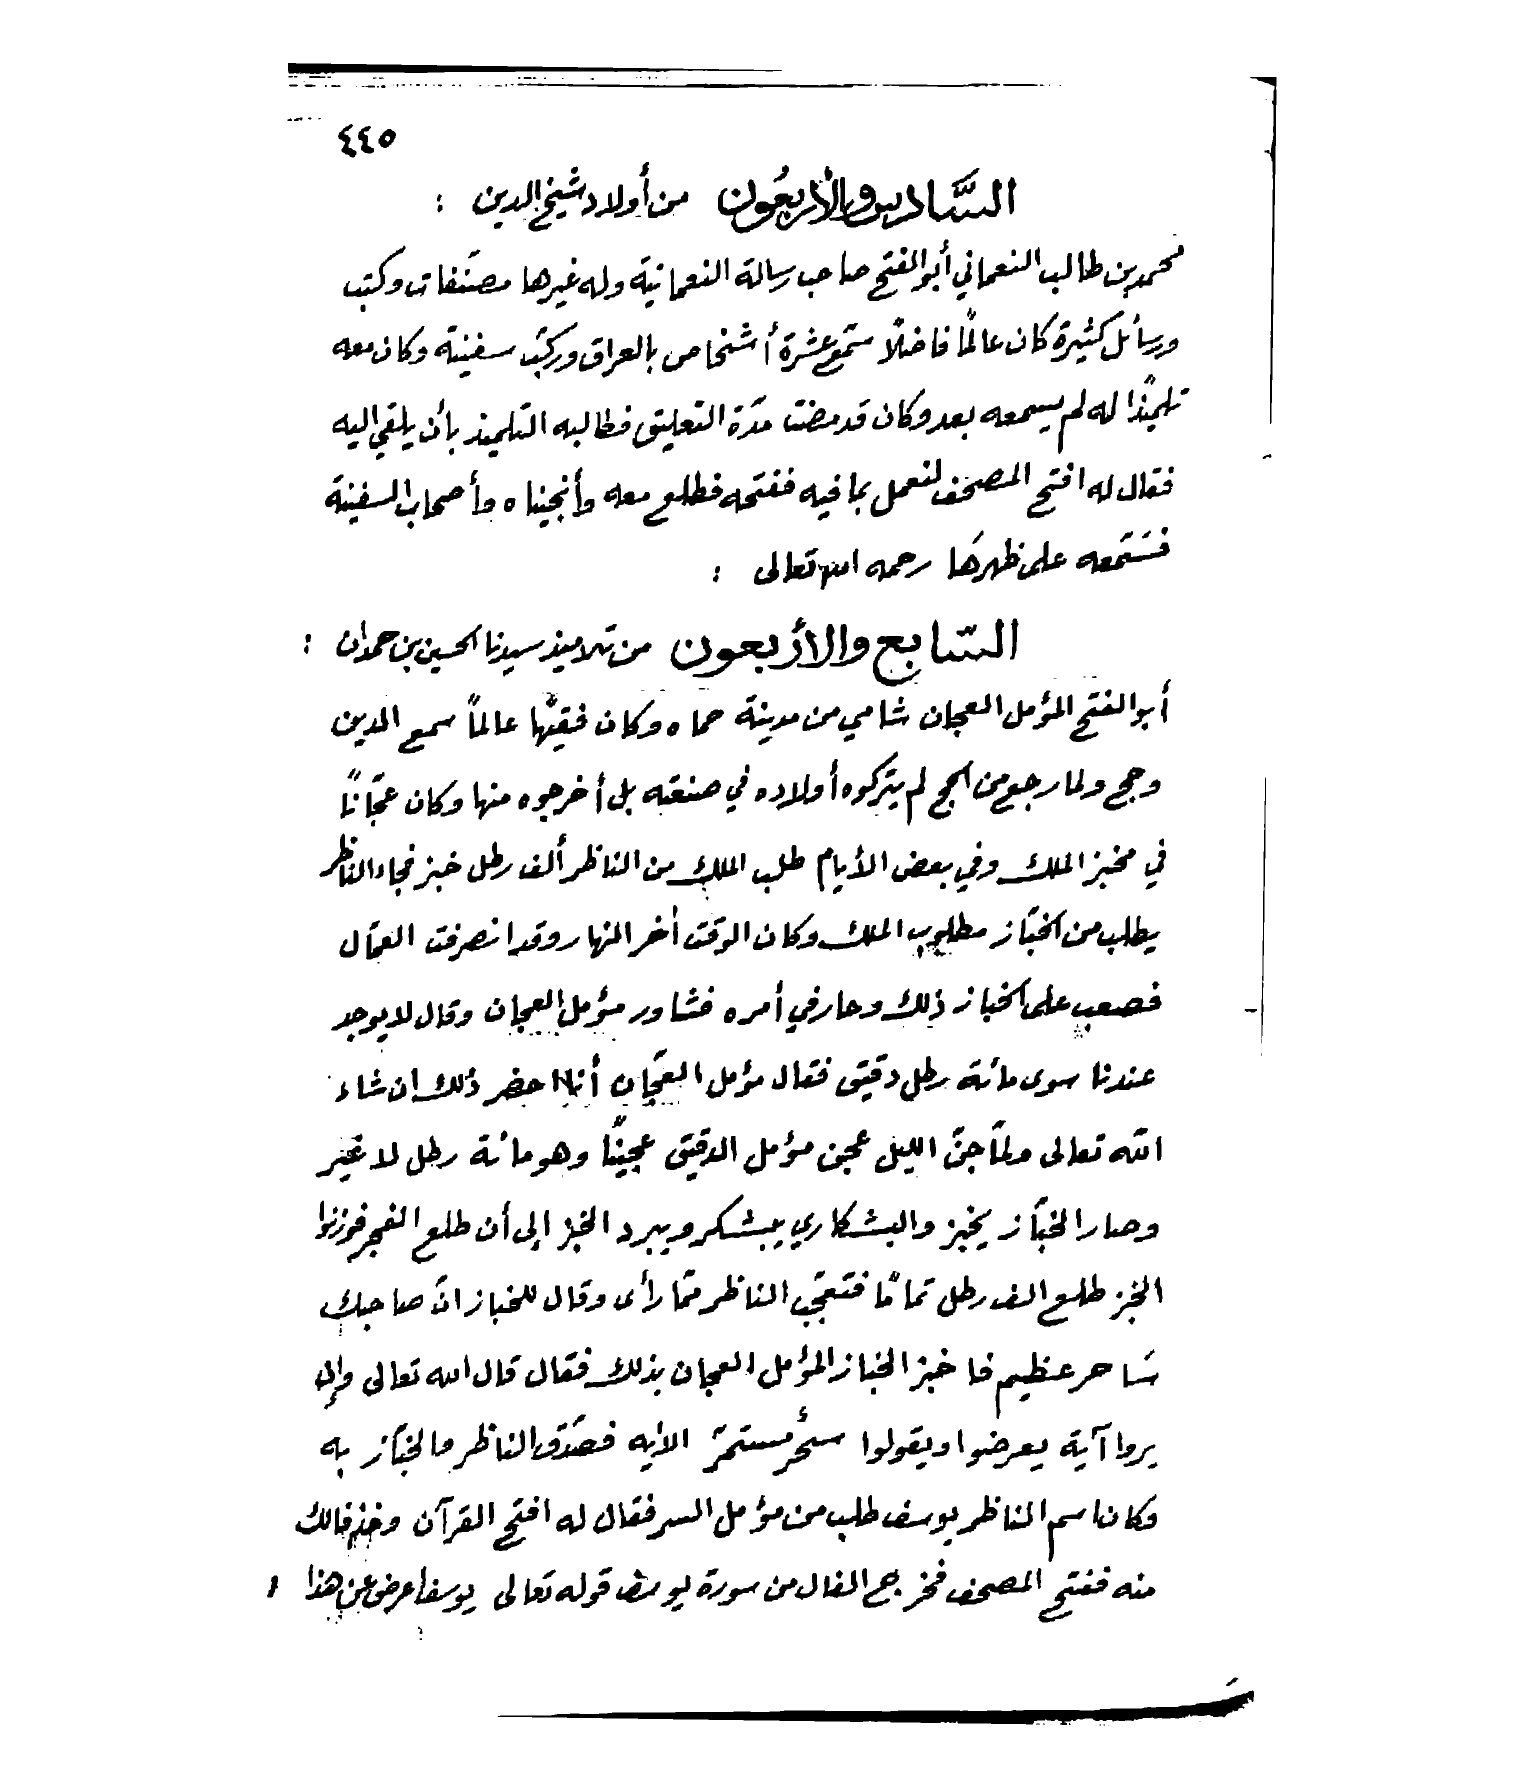 ٤٤٥
السَّادس والأربعُون من أولاد شيخ الدين :
محمد بن طالب النعماني أبو الفتح صاحب رسالة النعمانية وله غيرها مصنّفات وكتب
ورسائل كثيرة كان عالمًا فاضلًا سمّع عشرة أشخاص بالعراق وركب سفينة وكان معه
تلميذًا له لم يسمعه بعد وكان قد مضت مدّة التعليق فطالبه التلميذ بأن يلقي اليه
فقال له افتح المصحف لنعمل بما فيه ففتحه فطلع معه وأنجيناه وأصحاب السفينة
فسَمّعه على ظهرها رحمه الله تعالى :
السّابع والأربعون من تلاميذ سيدنا الحسين بن حمدان :
أبو الفتح المؤمل العجان شامي من مدينة حماه وكان فقيهًا عالمًا سمع الدين
وحج ولما رجع من الحج لم يتركوه أولاده في صنعته بل أخرجوه منها وكان عجّانًا
في مخبز الملك وفي بعض الأيام طلب الملك من الناظر ألف رطل خبز فجاء الناظر
يطلب من الخبّاز مطلوب الملك وكان الوقت أخر النهار وقد انصرفت العمّال
فصعب على الخباز ذلك وحار في أمره فشاور مؤمل العجان وقال لا يوجد
عندنا سوى مائة رطل دقيق فقال مؤمل العجّان أنا احضر ذلك ان شاء
الله تعالى ولمّا جنّ الليل عجن مؤمل الدقيق عجينًا وهو مائة رطل لا غير
وصار الخبّاز يخبز والبشكاري يبشكر ويبرد الخبز إلى أن طلع الفجر فوزنوا
الخبز طلع الف رطل تمامًا فتعجّب الناظر ممّا رأى وقال للخباز انّ صاحبك
سَاحر عظيم فاخبز الخباز المؤمل العجان بذلك فقال قال الله تعالى وإن
يروا آية يعرضوا ويقولوا سحْر مستمرّ الآيه فصَدّق الناظر والخبّاز به
وكان اسم الناظر يوسف طلب من مؤمل السر فقال له افتح القرآن وخذ فالك
منه ففتح المصحف فخرج الفال من سورة يوسف قوله تعالى يوسف اعرض عن هذا :